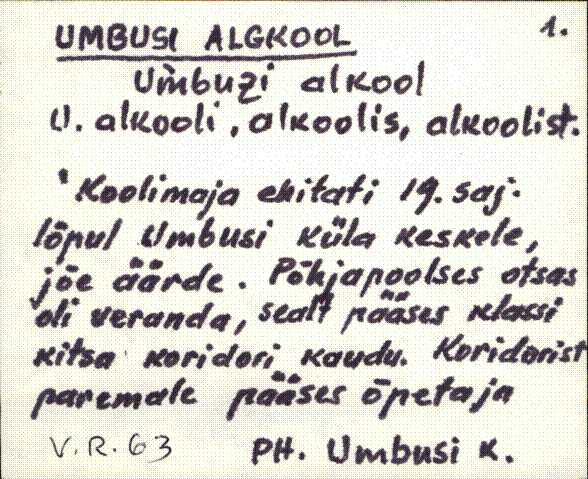 UMBUSI ALGKOOL 1.
Umbuzi alkool
U. alkooli, alkoolis, alkoolist.
Koolimaja ehitati 19. saj.
lõpul Umbusi küla keskele,
jõe äärde. Põhjapoolses otsas
oli veranda, sealt pääses klassi
kitsa koridori kaudu. Koridorist
paremale pääses õpetaja
V.R. 63 PH. Umbusi k.